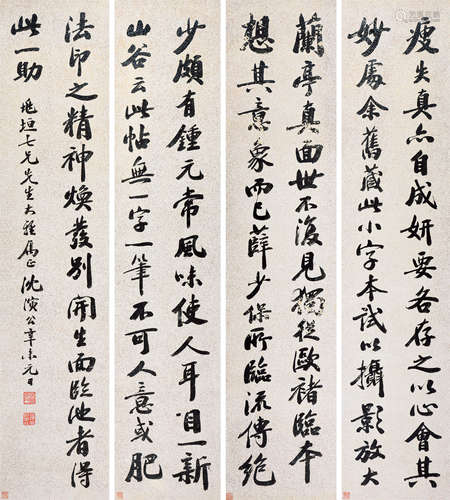 瘦失真亦自成妍要各存之以心會其
妙處余舊藏此小字本試以攝影放大
蘭亭真面世不復見獨從歐褚臨本
想其意象而已薛少保所臨流傳絕
少頗有鍾元常風味使人耳目一新
山谷云此帖無一字一筆不可人意或肥
法印之精神煥發別開生面臨池者得
此一助 兆垣七兄先生大雅屬正 沈演公辛未元日